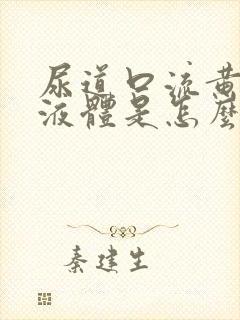 尿道口流黄
液體是怎麼
秦建生